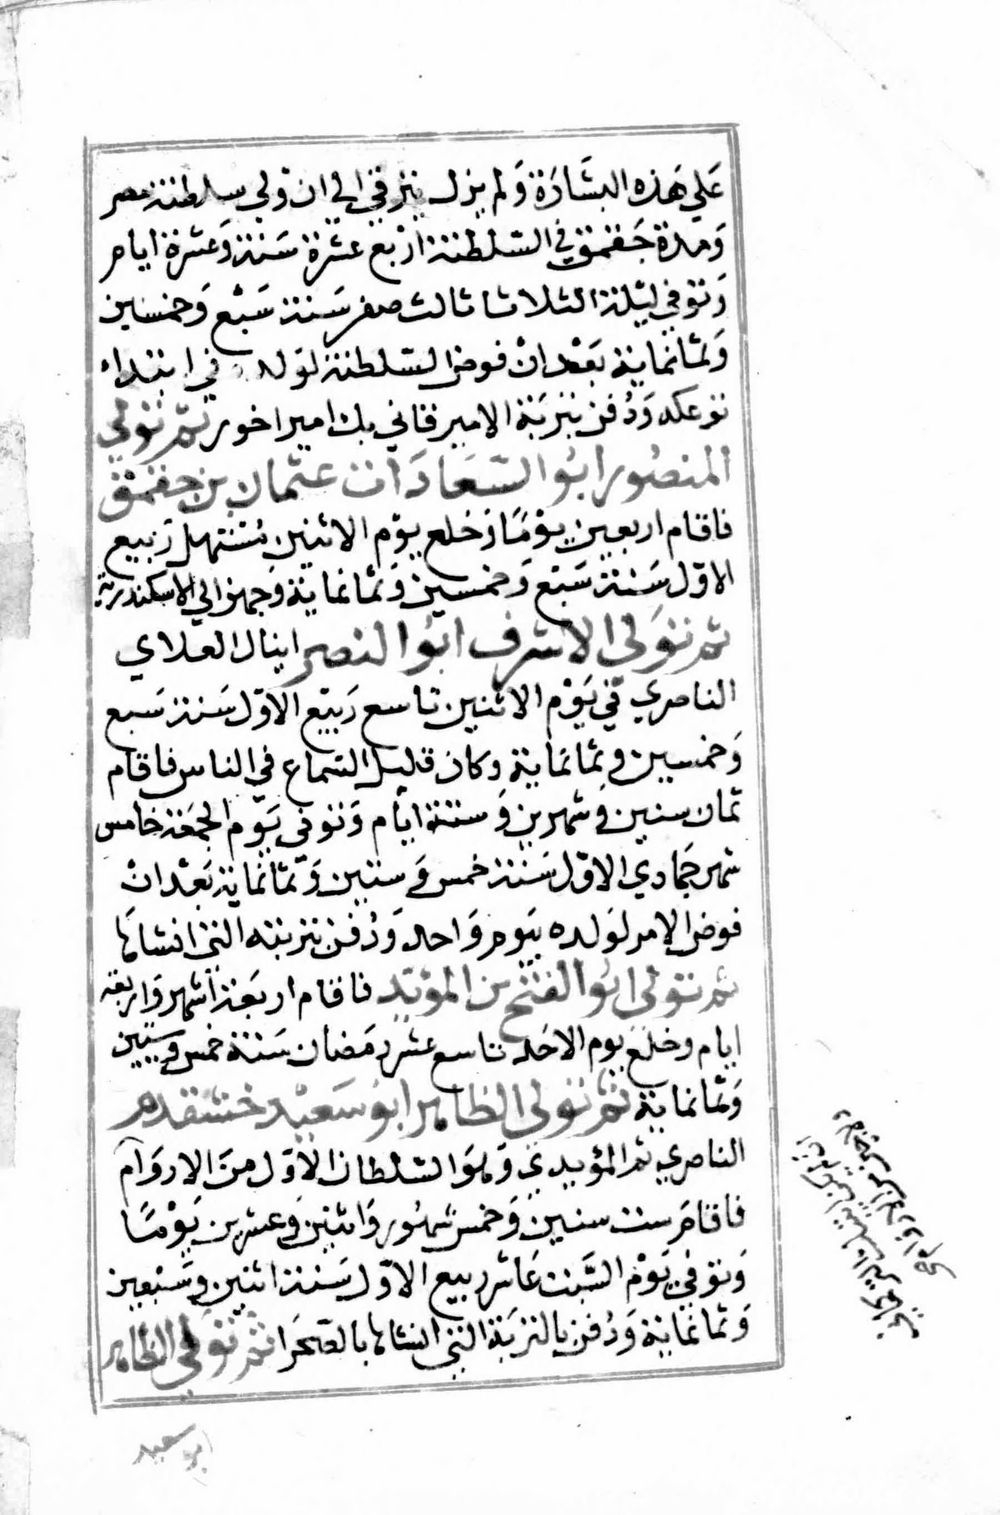 عَلي هَذه البشَارَة وَلم يزل يترقي الي ان ولي سلطنة مصر
وَمدة جَقمق في السّلطنة اربع عشرة سَنة وَعشرة ايام
وَتوفي ليْلة الثلاثا ثالث صفر سَنة سَبْع وَخمسين
وَثمانماية بَعْد انْ فوض السّلطنة لوَلده في ابتداء
توعكه وَدُفن بتربَة الامير قاني بك اميراخور ثم تولي
المنصُور ابُو السَّعَادَات عثمان بن جقمق
فاقام اربعين يوْمًا وَخلع يوْم الاثنين مُسْتهل رَبيع
الاوّل سَنة سَبْع وَخمسين وَثمانماية وَجهز الي الاسكندرية
ثم توَلي الاشرف ابُو النصر اينال العلاي
الناصري في يَوْم الاثنين تاسع رَبيع الاوّل سَنة سَبع
وَخمسين وثمانماية وكان قليل السّماع في الناس فاقام
ثمان سنين وَشهرين وَستة ايام وَتوفي يَوم الجمعَة خامس
شهر جَمادي الاوّل سَنة خمس وَستين وَثمانماية بَعْد انْ
فوض الامر لوَلده بيَوم وَاحد وَدُفن بتربته التي انشاها
ثم تولي ابو الفتح بن المؤيّد فاقام اربعَة اشهر وَاربعة
ايام وخلع يوم الاحَد تاسع عشر رمَضان سَنة خمس وستين
وَثمانماية ثم تولي الظاهر ابو سَعيْد خشقدم
الناصري ثم المؤيدي وَهوَ السّلطان الاوّل منَ الاروَام
فاقامَ ست سنين وَخمس شهُور وَاثنين وَعشرين يَوْمًا
وَتوفي يَوْم السَّبت عَاشر ربيع الاوّل سَنة اثنين وَسَبْعين
وَثمانماية وَدُفن بالتربَة التي انشاها بالصّحَرا ثم توَلي الظاهر
ابو سعيد